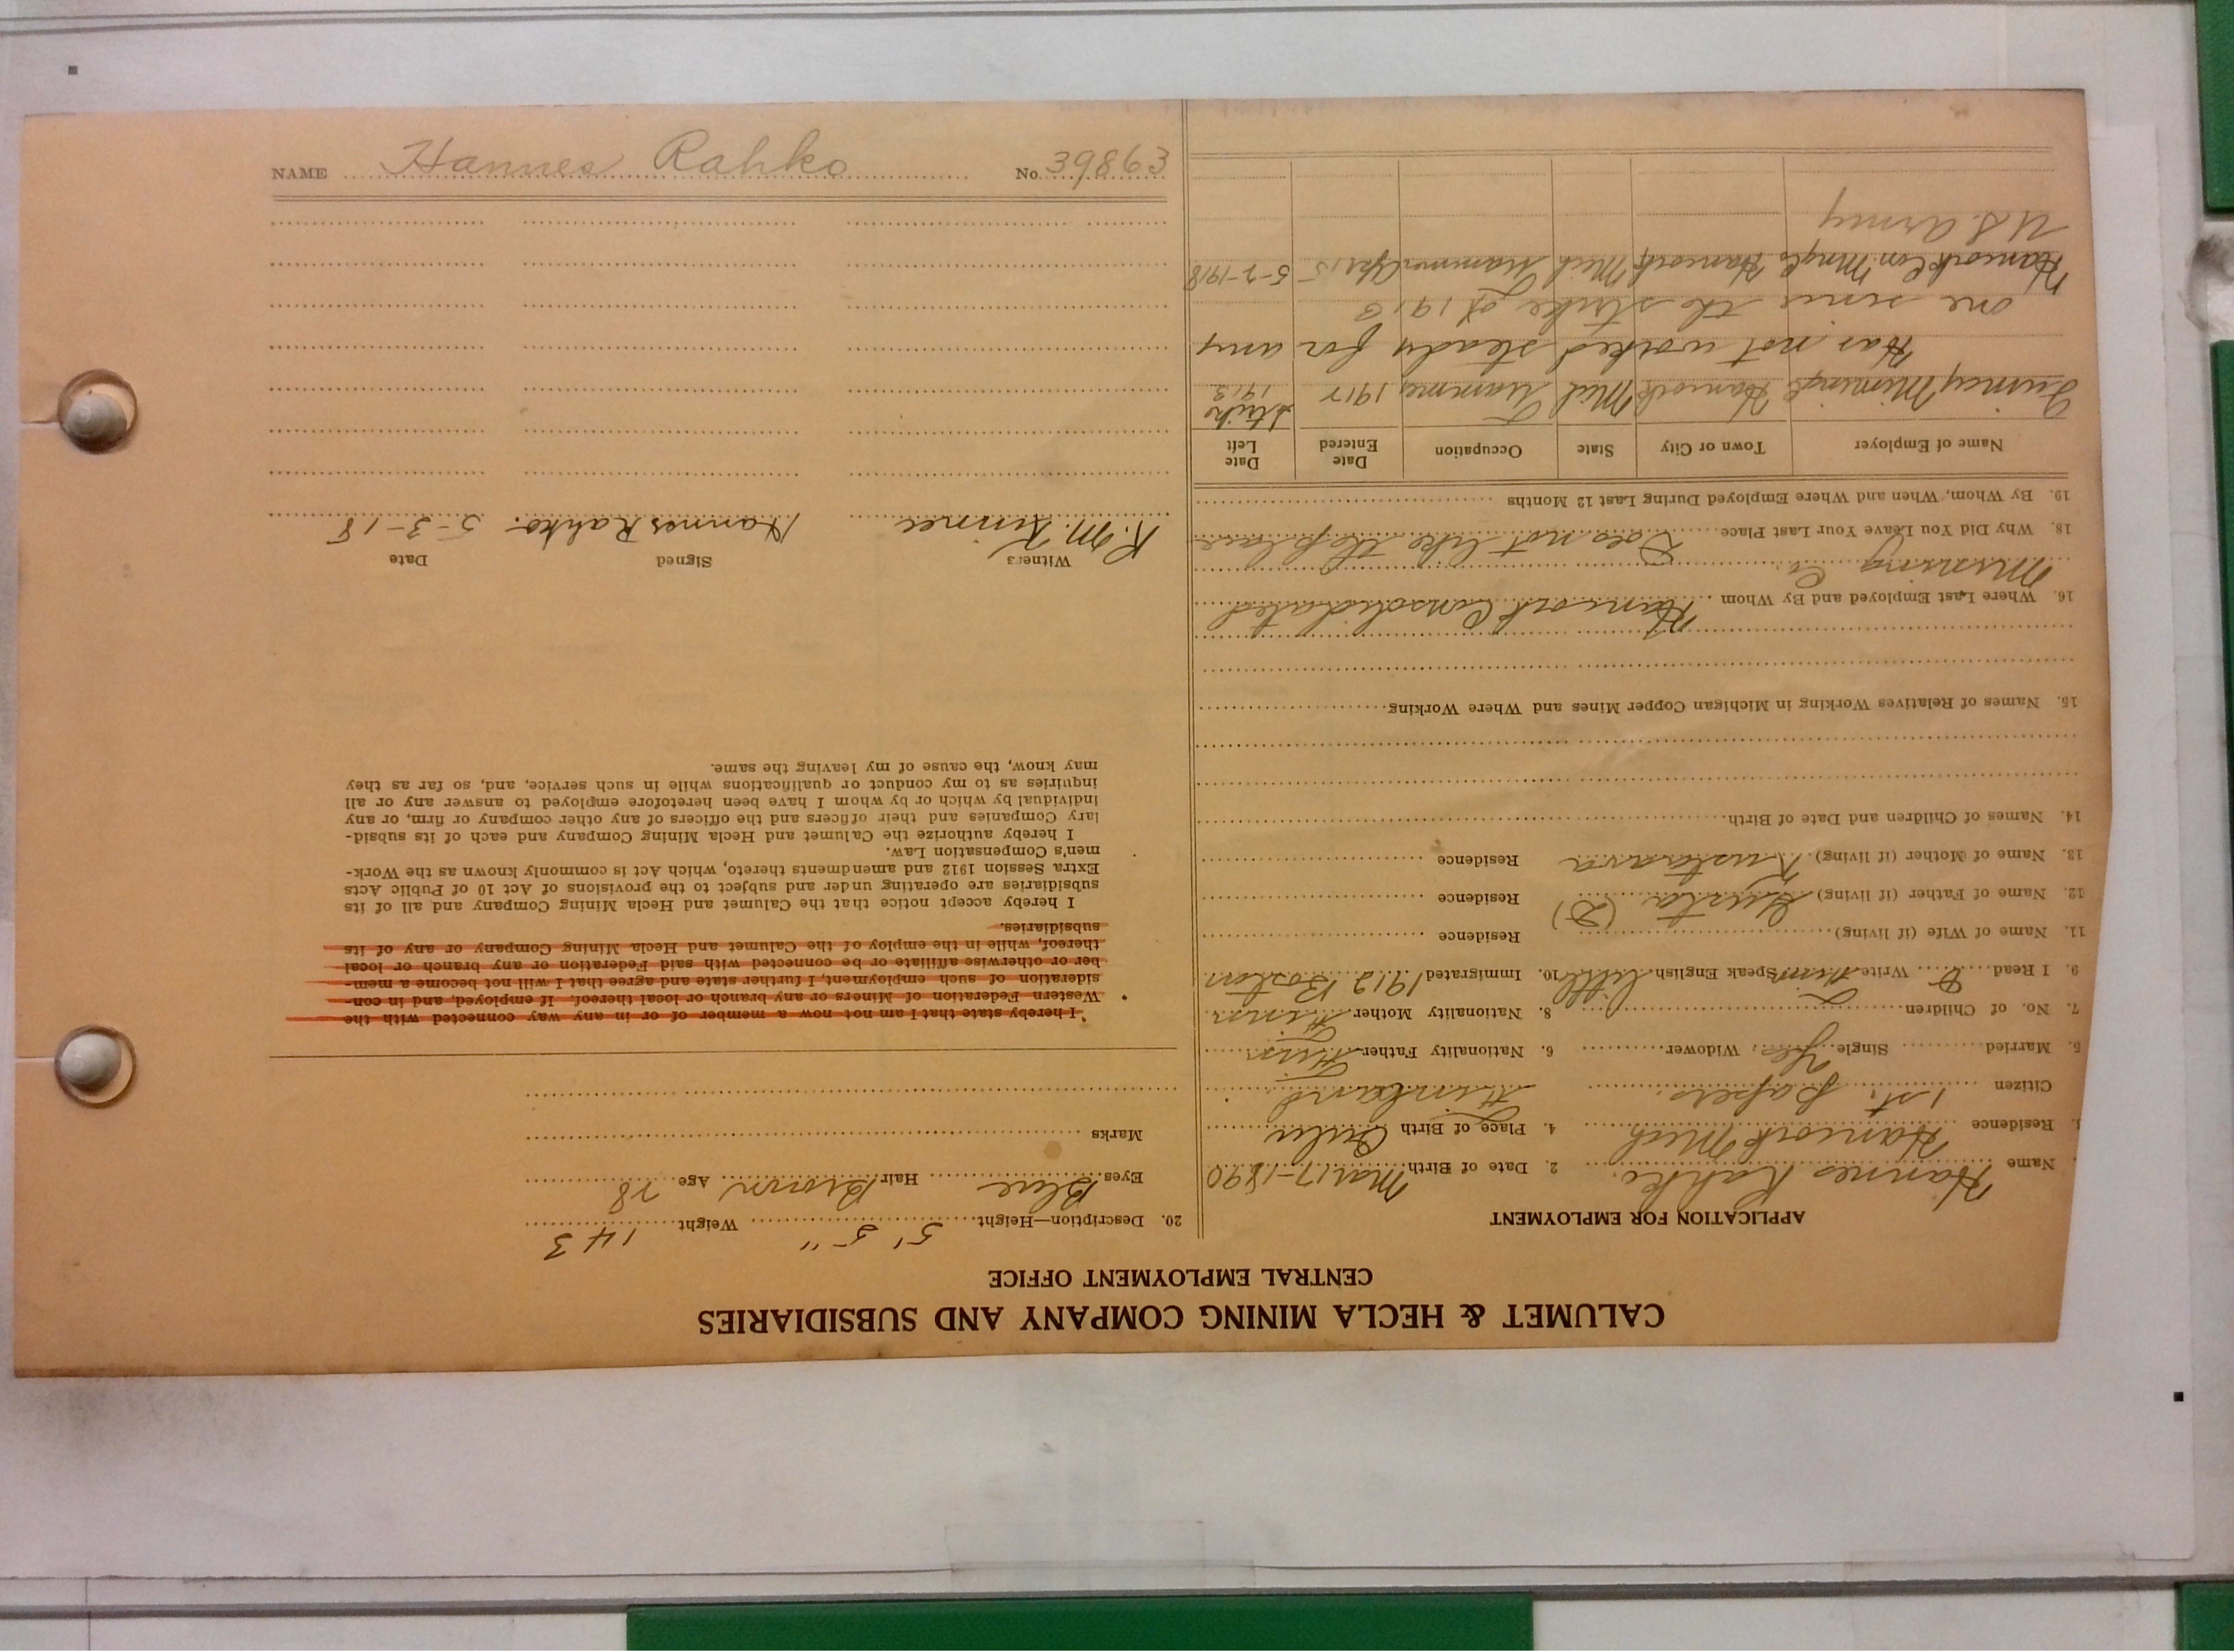 CALUMET & HECLA MINING COMPANY AND SUBSIDIARIES
CENTRAL EMPLOYMENT OFFICE
APPLICATION FOR EMPLOYMENT
Name Hannes Rahko. 2. Date of Birth Mar 17-1890
3. Residence Hancock Mich 4. Place of Birth Oulu
Citizen 1st. papers. Finland
5. Married Single Yes Widower 6. Nationality Father Finn
7. No. of Children 8. Nationality Mother Finn
9. I Read Write Finn Speak English little 10. Immigrated 1912 Boston
11. Name of Wife (if living) Residence
12. Name of Father (if living) Gusta (D) Residence
13. Name of Mother (if living) Residence
14. Names of Children and Date of Birth
15. Names of Relatives Working in Michigan Copper Mines and Where Working
16. Where Last Employed and By Whom Hancock Consolidated
Mining Co.
18. Why Did You Leave Your Last Place Does not like the place
19. By Whom, When and Where Employed During Last 12 Months
Name of Employer Town or City State Occupation Date Entered Date Left
Quincy Mining Co Hancock Mich Trammer 1912 Strike 1913
Has not worked steady for any
one since the strike of 1913
Hancock Con Mng Co Hancock Mich Trammer 5-2-1918
U.S. Army
20. Description—Height 5' 5" Weight 143
Eyes Blue Hair Brown Age 28
Marks
I hereby state that I am not now a member of or in any way connected with the
Western Federation of Miners or any branch or local thereof. If employed, and in con-
sideration of such employment, I further state and agree that I will not become a mem-
ber or otherwise affiliate or be connected with said Federation or any branch or local
thereof, while in the employ of the Calumet and Hecla Mining Company or any of its
subsidiaries.
I hereby accept notice that the Calumet and Hecla Mining Company and all of its
subsidiaries are operating under and subject to the provisions of Act 10 of Public Acts
Extra Session 1912 and amendments thereto, which Act is commonly known as the Work-
men's Compensation Law.
I hereby authorize the Calumet and Hecla Mining Company and each of its subsid-
iary Companies and their officers and the officers of any other company or firm, or any
individual by which or by whom I have been heretofore employed to answer any or all
inquiries as to my conduct or qualifications while in such service, and, so far as they
may know, the cause of my leaving the same.
Witness Signed Date
R.M. Hannes Rahko. 5-3-18
NAME Hannes Rahko No. 39863